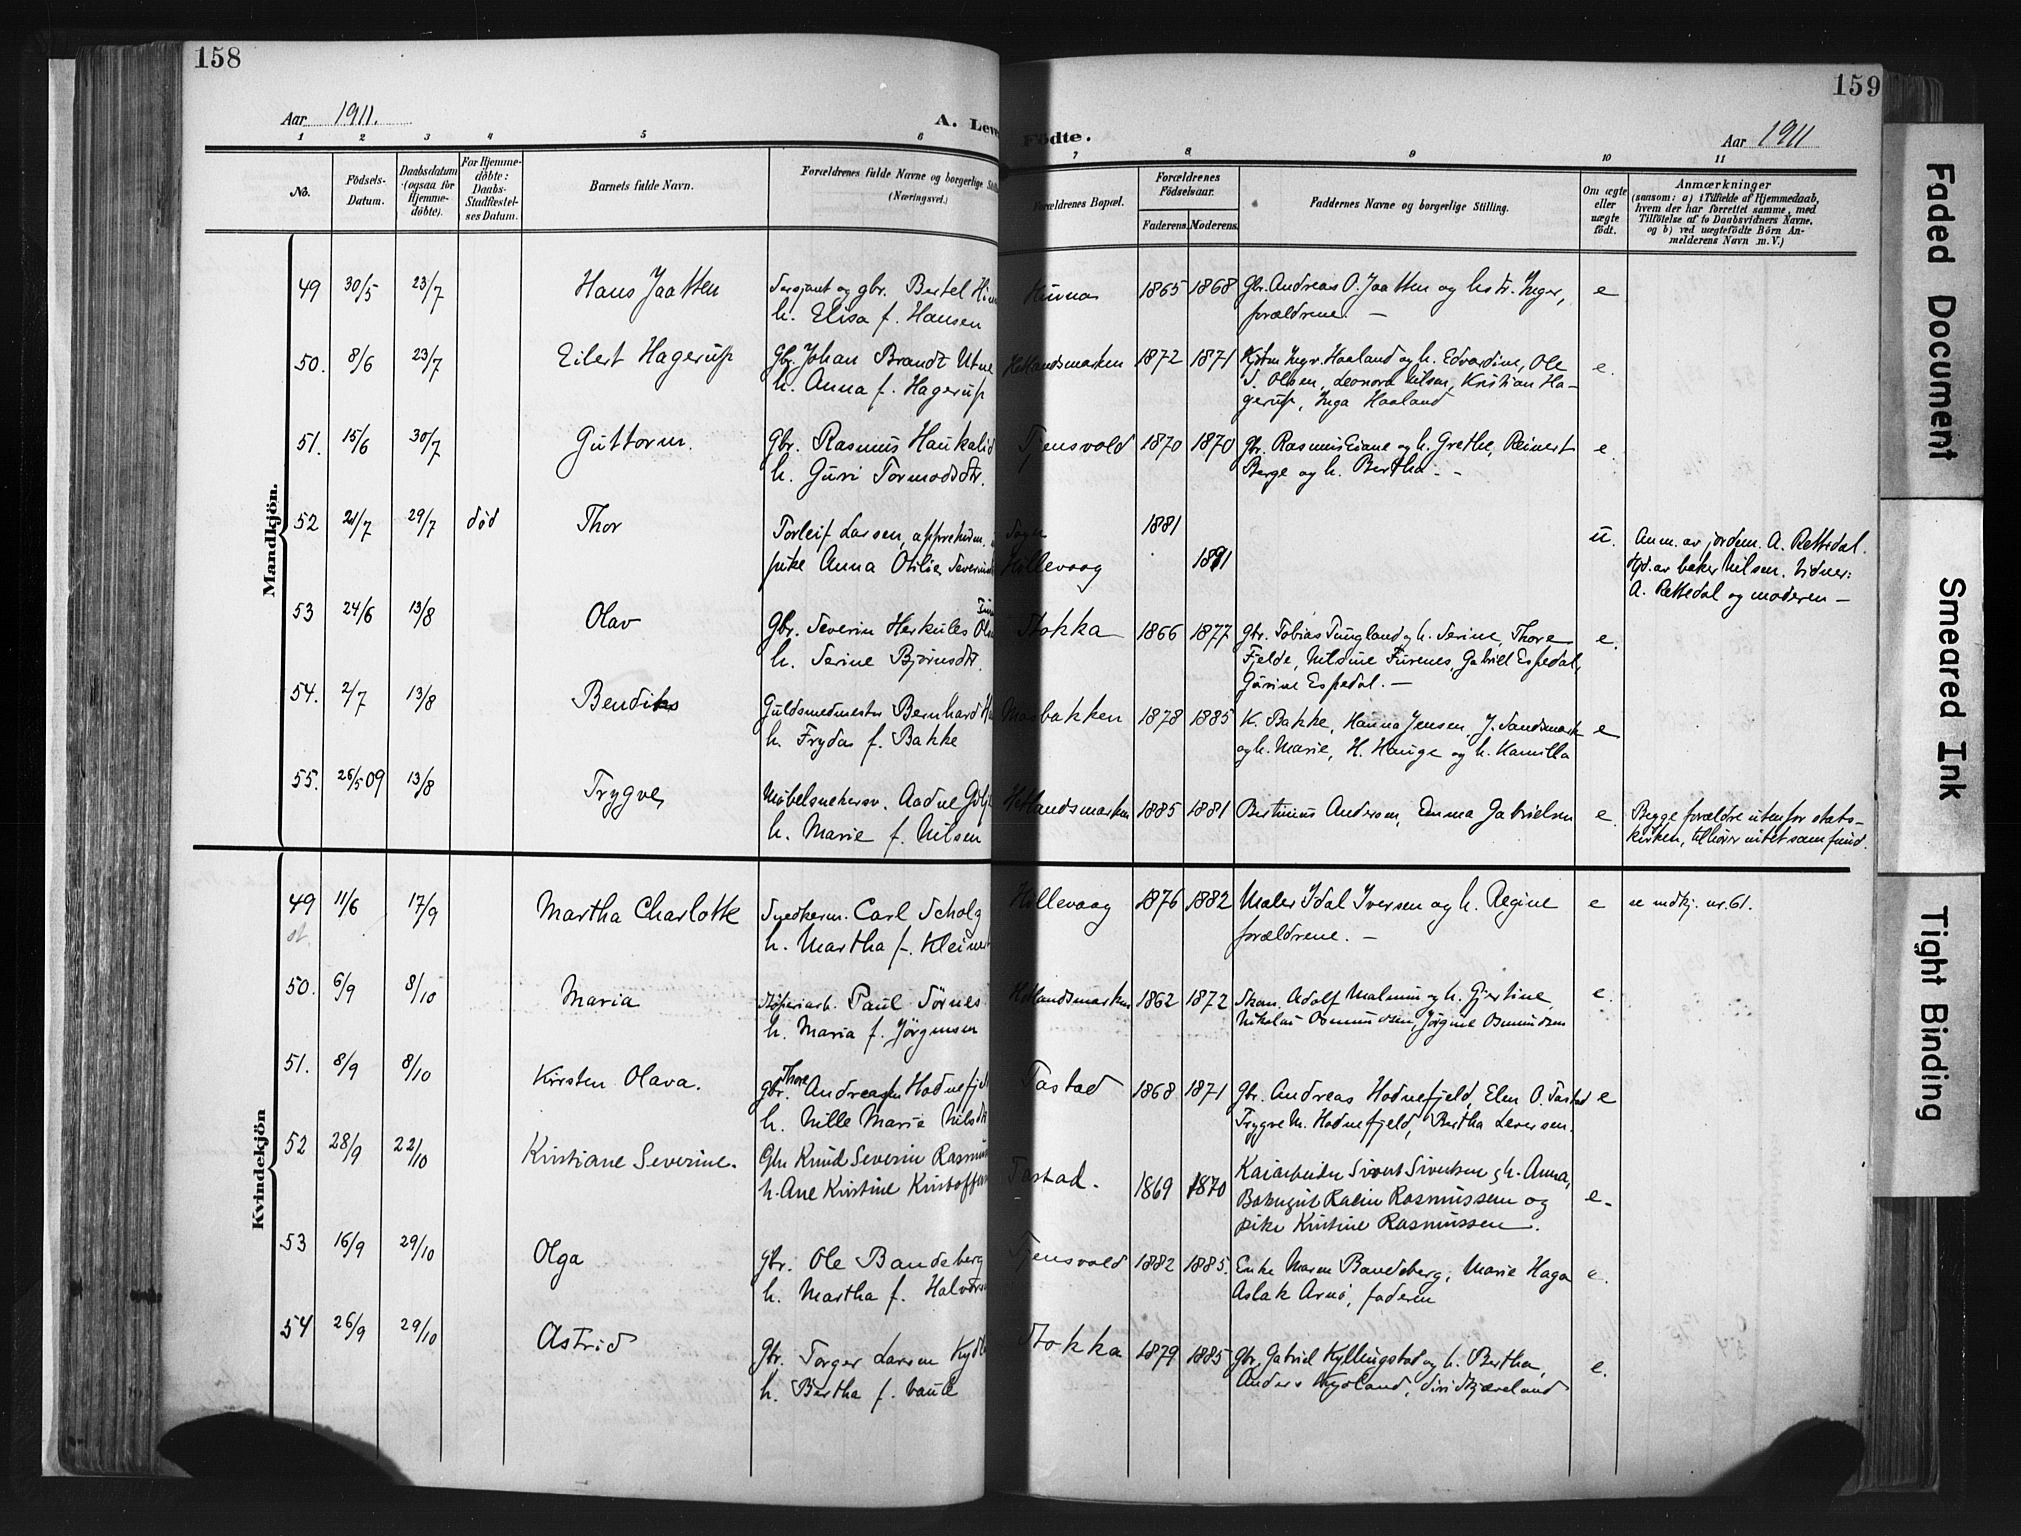 158
Aar 1911.
A. Leve
1 2 3 4 5 6
No.
Födsels-
Datum.
Daabsdatum
(ogsaa for
Hjemme-
döbte).
For Hjemme-
döbte:
Daabs-
Stadfæstel-
ses Datum.
Barnets fulde Navn.
Forældrenes fulde Navne og borgerlige Still
(Næringsvei.)
Mandkjön.
49 30/5 23/7 Hans Jaatten Sersjant og gbr. Bertel
h. Elisa f. Hansen
50. 8/6 23/7 Eilert Hagerup Gbr. Johan Brandt Utne
h. Anna f. Hagerup
51. 15/6 30/7 Guttorm. Gbr. Rasmus Haukalid
h. Guri Tormodsdtr.
52 21/7 29/7 död Thor Torleif Larsen,
pike Anna Otilie Severins
53 24/6 13/8 Olav Gbr. Severin Herkules
h. Serine Bjørnsdtr.
54. 2/7 13/8 Bendiks Guldsmedmester Bernhard
h. Frydas f. Bakke
55. 26/5 09 13/8 Trygve Aadne
h. Marie f. Nilsen
Kvindekjön
49 11/6 17/9 Martha Charlotte Snedkerm. Carl Scholz
h. Martha f. Kleinert
50. 6/9 8/10 Maria Paul Sörnes
h. Maria f. Jörgensen
51. 8/9 8/10 Kirsten Olava. gbr. Thore Andreassen Hodnefjeld
h. Nille Marie Nilsdtr
52 28/9 22/10 Kristiane Severine. Gbr. Knud Severin Rasmus
h. Ane Kristine Kristoffers
53 16/9 29/10 Olga gbr. Ole Bandeberg
h. Martha f. Halvors
54 26/9 29/10 Astrid Gbr. Torger Larsen
h. Bertha f. Vaule
159
Födte.
Aar 1911
7 8 9 10 11
Forældrenes Bopæl.
Forældrenes
Födselsaar.
Faderens. Moderens.
Faddernes Navne og borgerlige Stilling.
Om ægte
eller
uægte
födt.
Anmærkninger
(saasom: a) i Tilfælde af Hjemmedaab,
hvem der har forrettet samme, med
Tilföielse af to Daabsvidners Navne,
og b) ved uægtefödte Börn An-
melderens Navn m. V.)
Hinna 1865 1868 Gbr. Andreas O. Jaatten og hstr. Inger, e
forældrene. —
Hetlandsmarken 1872 1871 Ingv. Haaland og h. Edvardine, Ole e.
S. Olsen, Leonora Nilsen, Kristian Ha-
gerup, Inga Haaland
Tjensvold 1870 1870 Gbr. Rasmus Eiane og h. Grethe, Reinert e.
Berge og h. Bertha. —
Sogn 1881 u. Anm. av jordm. A. Rettedal.
Hillevaag 1891 Hjd. av baker Nilsen. Vidner:
A. Rettedal og moderen —
Stokka 1866 1877 gbr. Tobias Tungland og h. Serine, Thore e.
Fjelde, Nilsine Furenes, Gabriel Espedal,
Gurine Espedal. —
Mosbakken 1878 1885 K. Bakke, Hanna Jensen, J. Sandsmark e
og h. Marie, H. Hauge og h. Kamilla
Hetlandsmarken 1885 1881 Bertinius Andersen, Emma Gabrielsen e. Begge forældre utenfor stats-
kirken, tilhører intet samfund.
Hillevaag 1876 1882 Maler Idal Iversen og h. Regine e se mdkj. nr. 61.
forældrene. —
Hetlandsmarken 1862 1872 Skom. Adolf Malmin og h. Gjertine, e.
Nikolai Osmundsen, Jörgine Osmundsen
Tastad 1868 1871 Gbr. Andreas Hodnefjeld, Elen O. Tastad e
Trygve M. Hodnefjeld, Bertha Leversen.
Tastad. 1869 1870 Kaiarbeider Sivert Sivertsen og h. Anna, e.
Rasmussen og
pike Kristine Rasmussen.
Tjensvold 1882 1885. Enke Maren Bandeberg, Marie Haga e.
Aslak Arnö, faderen
Stokka 1879 1885 Gbr. Gabriel Kyllingstad og h. Bertha, e.
Anders
Faded Document
Smeared Ink
Tight Binding